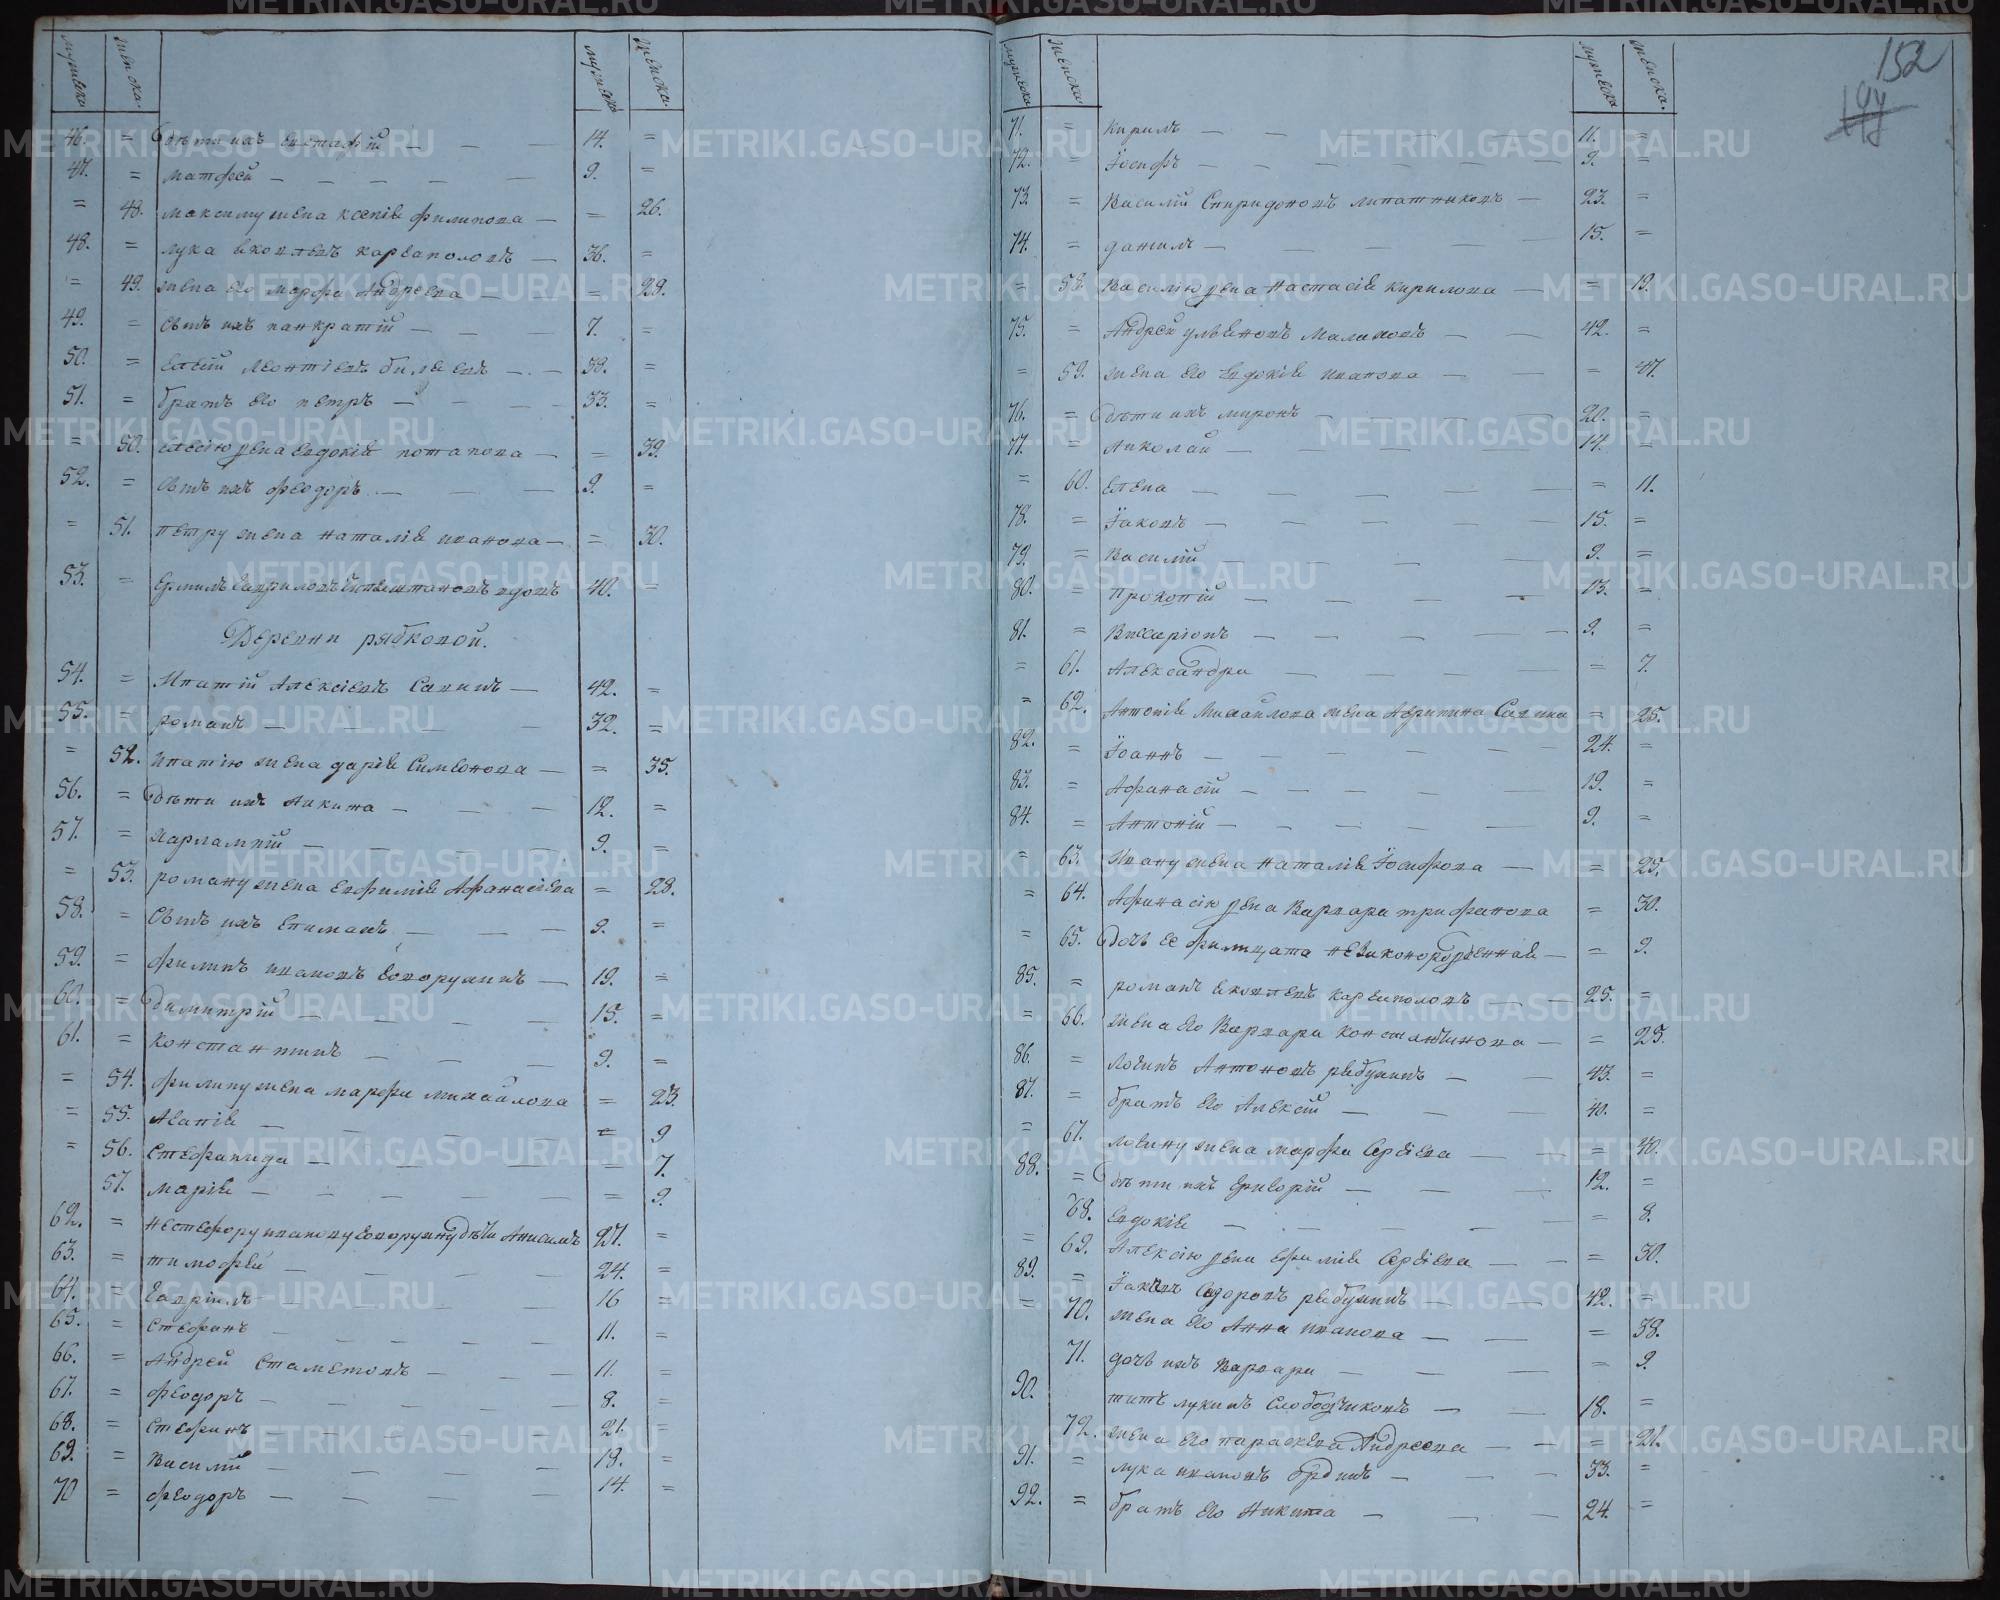 мужеска женска. мужеска женска.
46. = дѣти ихъ Евстафій — 14. =
47. = Матфей — 9. =
= 48. Максиму жена Ксенія Филипова — = 26.
48. = Лука Яковлевъ Карсаполовъ — 36. =
= 49. жена его Марфа Андреева — = 29.
49. = Сынъ ихъ Панкратій — 7. =
50. = Елсій Леонтіевъ — 38. =
51. = братъ его Петръ — 33. =
= 50. Елсію жена Евдокія Потапова — = 39.
52. = Сынъ ихъ Феодоръ — 9. =
= 51. Петру жена Наталія Иванова — = 30.
53. = Ермилъ Гавриловъ вдовъ 40. =
Деревни Рябковой.
54. = Ипатій Алексіевъ Савинъ — 42. =
55. = Романъ — 32. =
= 52. Ипатію жена Дарія Симеонова — = 35.
56. = дѣти ихъ Никита — 12. =
57. = Харлампій — 9. =
= 53. Роману жена Евфимія Афанасіева = 28.
58. = Сынъ ихъ Епимахъ — 9. =
59. = Филипъ Ивановъ Говорухинъ — 19. =
60. = Димитрій — 15. =
61. = Константинъ — 9. =
= 54. Филипу жена Марфа Михайлова = 23.
= 55. Агапія — = 9
= 56. Стефанида — = 7.
57. Марія — = 9.
62. = Нестефору Иванову Говорухину дѣти Анисимъ 27. =
63. = Тимофей — 24. =
64. = Гавріилъ — 16 =
65. = Стефанъ — 11. =
66. = Андрей Стаметовъ — 11. =
67. = Феодоръ — 8. =
68. = Стефанъ — 21. =
69. = Василій — 19. =
70 = Феодоръ — 14. =
152
мужеска женска мужеска женска.
71. = Кирилъ — 11. =
72. = Іосифъ — 9. =
73. = Василій Спиридоновъ Липатниковъ — 23. =
74. = Данилъ — 15. =
= 58. Василію жена Настасія Кирилова — = 19.
75. = Андрей Ульяновъ Малиновъ — 42. =
= 59. жена его Евдокія Иванова — = 47.
76. = дѣти ихъ Миронъ — 20. =
77. = Николай — 14. =
= 60. Елена — = 11.
78. = Іаковъ — 15. =
79. = Василій — 9. =
80. = Прокопій — 13. =
81. = Висаріонъ — 9. =
= 61. Александра — = 7.
= 62. Антонія Михайлова жена Агрипина Савина = 25.
82. = Іоаннъ — 24. =
83. = Афанасій — 19. =
84. = Антоній — 9. =
= 63. Ивану жена Наталія Іосифова — = 25.
= 64. Афанасію жена Варвара Трифанова = 30.
= 65. дочь ее Филицата незаконорожденная — = 9.
85. = Романъ Яковлевъ Карсаполовъ — 25. =
= 66. жена его Варвара Константинова — = 25.
86. = Логинъ Антоновъ Рябухинъ — 43. =
87. = братъ его Алексій — 40. =
= 67. Логину жена Марфа Сергіева — = 40.
88. = дѣти ихъ Григорій — 12. =
68. Евдокія — = 8.
= 69. Алексію жена Ефимія Сергіева — = 30.
89. = Іаковъ Сидоровъ Рябухинъ — 42. =
= 70. жена его Анна Иванова — = 38.
71. дочь ихъ Варвара — = 9.
90. Титъ Лукинъ Слободчиковъ — 18. =
72. жена его Параскева Андреева — = 21.
91. = Лука Ивановъ — 33. =
92. = братъ его Никита — 24. =